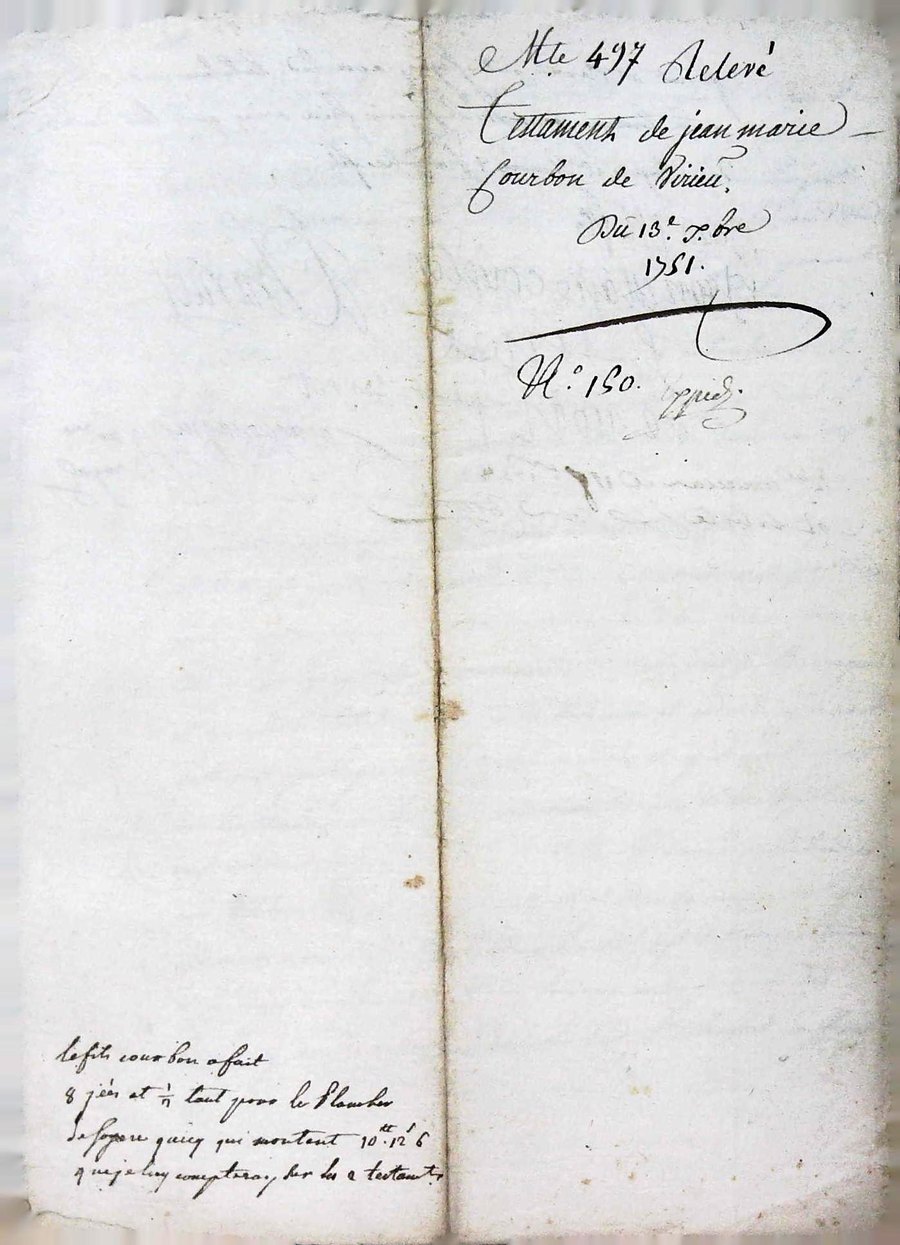 Mte 497 Relevé
Testament de jean marie
Courbon de Virieu.
Du 13e. xbre
1751.
N.o 150.
le fils courbon a fait
8 jées et ½ tant pour le Plancher
qui montent 10tt. 12s 6
que je luy compteray sur les 2 testaments